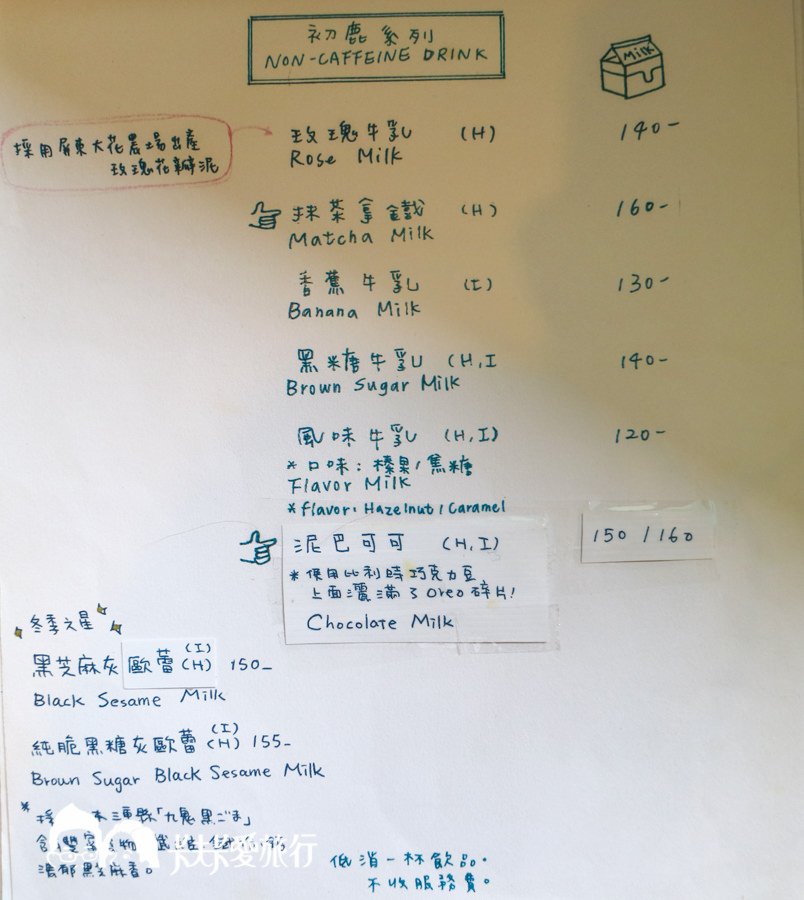 初鹿系列
NON-CAFFEINE DRINK
Milk
採用屏東大花農場出產
玫瑰花瓣泥
玫瑰牛乳 (H) 140-
Rose Milk
抹茶拿鐵 (H) 160-
Matcha Milk
香蕉牛乳 (I) 130-
Banana Milk
黑糖牛乳 (H,I 140-
Brown Sugar Milk
風味牛乳 (H,I) 120-
*口味:榛果/焦糖
Flavor Milk
*flavor: Hazelnut/Caramel
泥巴可可 (H,I) 150/160
*使用比利時巧克力豆
上面灑滿了Oreo碎片!
Chocolate Milk
冬季之星
黑芝麻灰歐蕾 (I) (H) 150-
Black Sesame Milk
純脆黑糖灰歐蕾 (I) (H) 155-
Brown Sugar Black Sesame Milk
*採 本三重縣「九鬼黑ごま」
含豐富
濃郁黑芝麻香。
卡卡愛旅行
低消一杯飲品.
不收服務費。